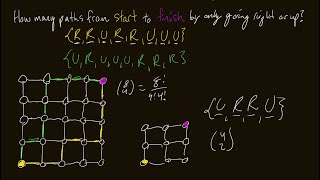 How many paths from start to finish by only going right or up?
{R, R, U, R, R, U, U, U}
{U, R, U, U, U, R, R, R}
(8 4) = 8! / 4!4!
{U, R, R, U}
(4 2)